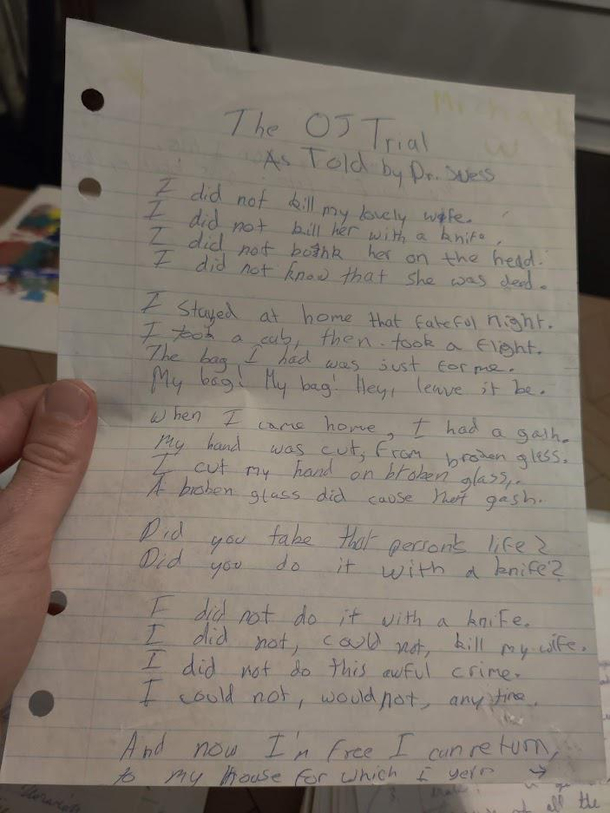 The OJ Trial
As Told by Dr. Suess
I did not kill my lovely wife.
I did not kill her with a knife.
I did not bonk her on the head.
I did not know that she was dead.
I stayed at home that fateful night.
I took a cab, then took a flight.
The bag I had was just for me.
My bag! My bag! Hey, leave it be.
When I came home, I had a gash.
My hand was cut, from broken glass.
I cut my hand on broken glass,
A broken glass did cause that gash.
Did you take that person's life?
Did you do it with a knife?
I did not do it with a knife.
I did not, could not, kill my wife.
I did not do this awful crime.
I could not, would not, any time.
And now I'm free I can return,
to my house for which I yern →